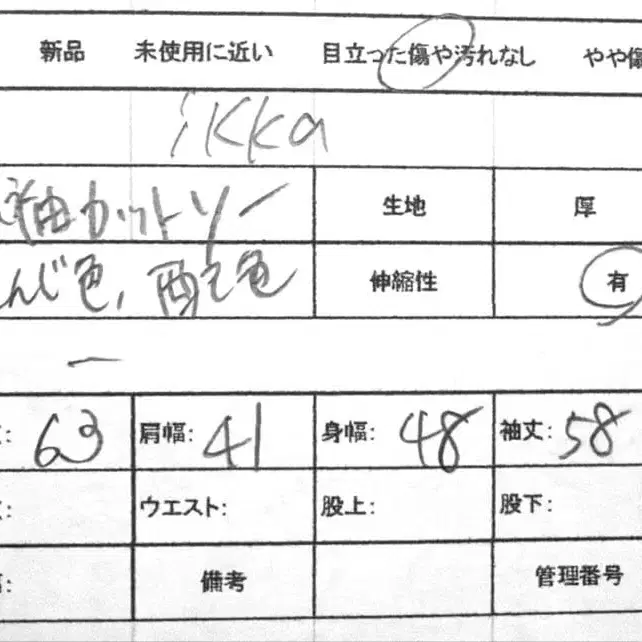 新品 未使用に近い 目立った傷や汚れなし やや傷
ikka
袖カットソー 生地 厚
んじ色, 配色 伸縮性 有
ー
: 63 肩幅: 41 身幅: 48 袖丈: 58
: ウエスト: 股上: 股下:
: 備考 管理番号